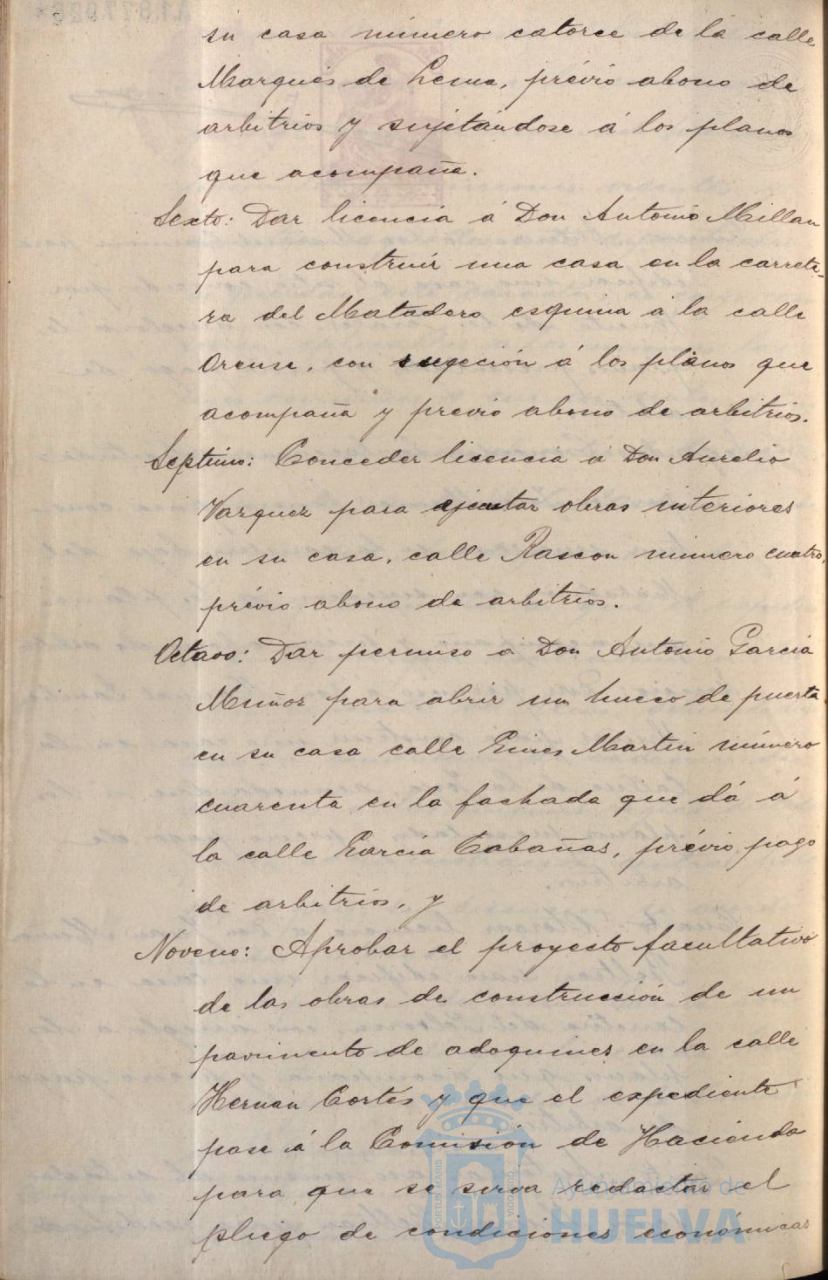 su casa número catorce de la calle
Marqués de Lema, prévio abono de
arbitrios y sujetándose á los planos
que acompaña.
Sexto: Dar licencia á Don Antonio Millan
para construir una casa en la carrete-
ra del Matadero esquina á la calle
Orense, con sugeción á los planos que
acompaña y previo abono de arbitrios.
Septimo: Conceder licencia á Don Aurelio
Vazquez para ejecutar obras interiores
en su casa, calle Rascon número cuatro,
prévio abono de arbitrios.
Octavo: Dar permiso á Don Antonio Garcia
Muñoz para abrir un hueco de puerta
en su casa calle Gines Martin número
cuarenta en la fachada que dá á
la calle Garcia Cabañas, prévio pago
de arbitrios, y
Noveno: Aprobar el proyecto facultativo
de las obras de construcción de un
pavimento de adoquines en la calle
Hernan Cortés y que el expediente
pase á la Comisión de Hacienda
para que se sirva redactar el
pliego de condiciones económicas
Ayuntamiento de
HUELVA